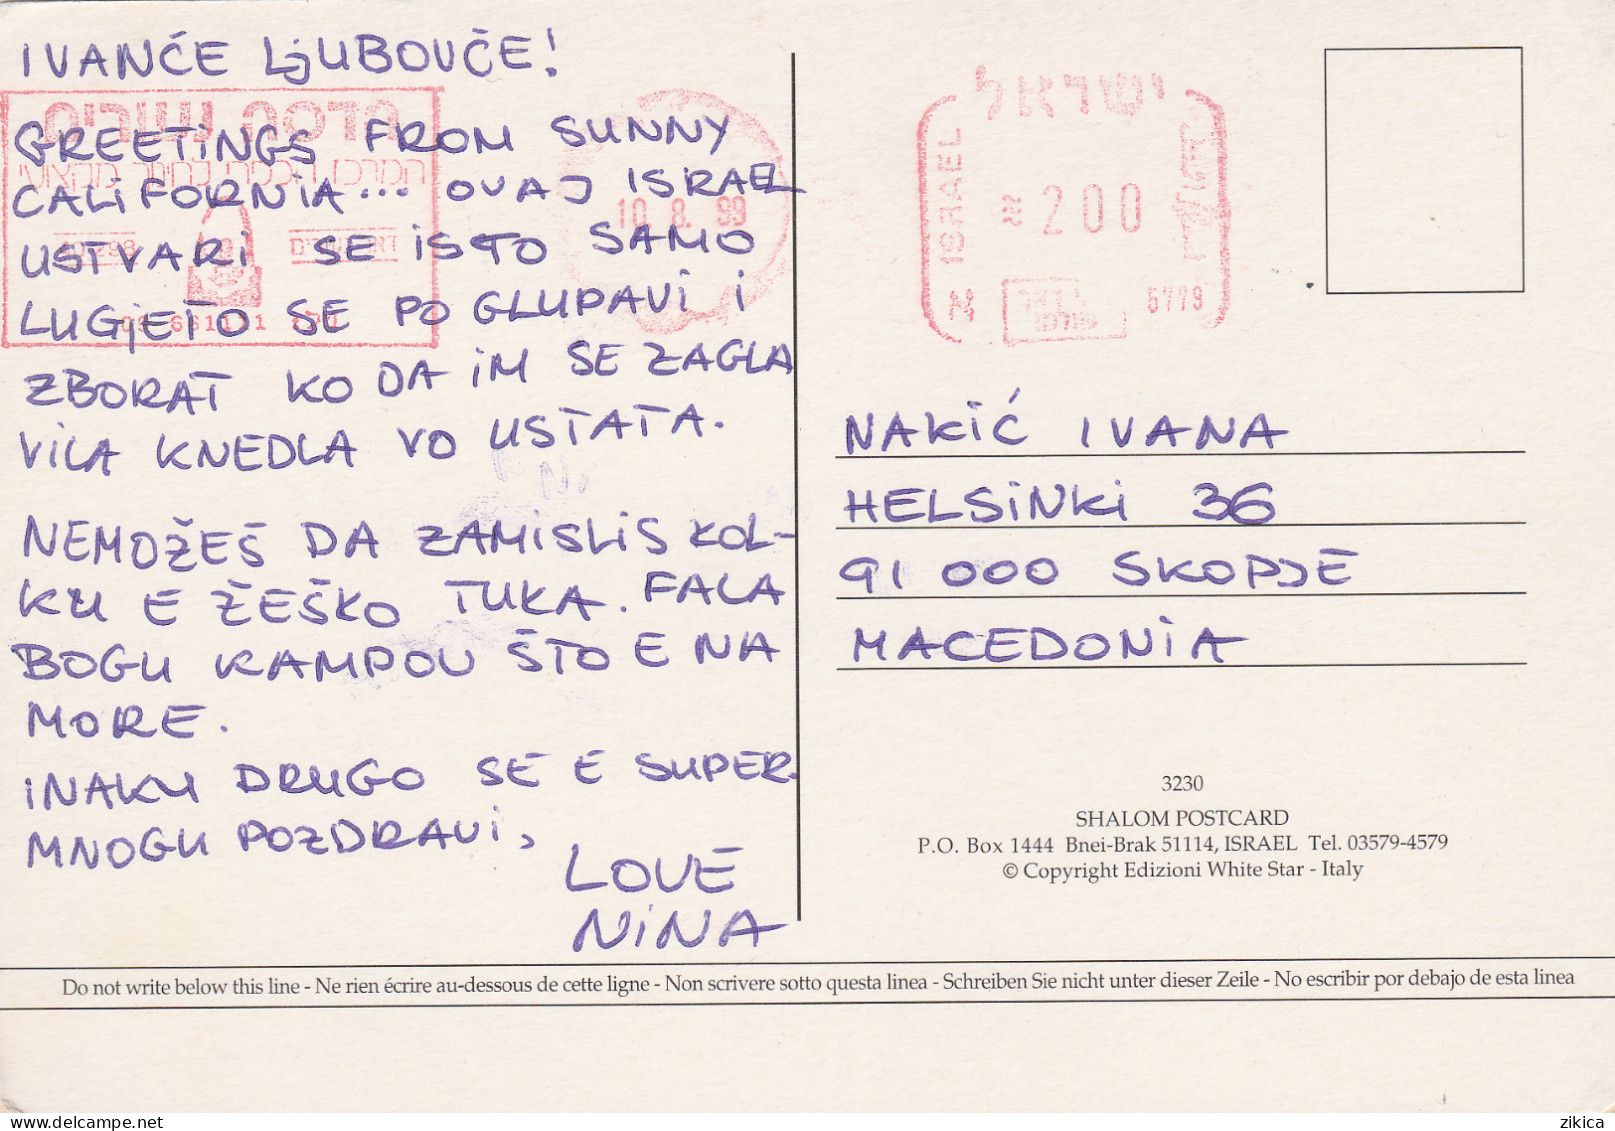 IVANĆE LjUBOVČE!
GREETiNGS FROM SUNNY
CALiFORNiA... OVAJ ISRAEL
USTVARi SE iSTO SAMO
LUGjETO SE PO GLUPAVi i
ZBORAT KO DA iM SE ZAGLA
ViLA KNEDLA VO USTATA.
NEMOŽEŠ DA ZAMiSLiS KOL-
KU E ŽEŠKO TUKA. FALA
BOGU KAMPOV ŠTO E NA
MORE.
iNAKU DRUGO SE E SUPER.
MNOGU POZDRAVi,
LOVE
NiNA
הדסה נעורים
10.8.99
ישראל
ISRAEL
200
5779
NAKiĆ IVANA
HELSiNKi 36
91 000 SKOPJE
MACEDONiA
3230
SHALOM POSTCARD
P.O. Box 1444 Bnei-Brak 51114, ISRAEL Tel. 03579-4579
© Copyright Edizioni White Star - Italy
Do not write below this line - Ne rien écrire au-dessous de cette ligne - Non scrivere sotto questa linea - Schreiben Sie nicht unter dieser Zeile - No escribir por debajo de esta linea
zikica